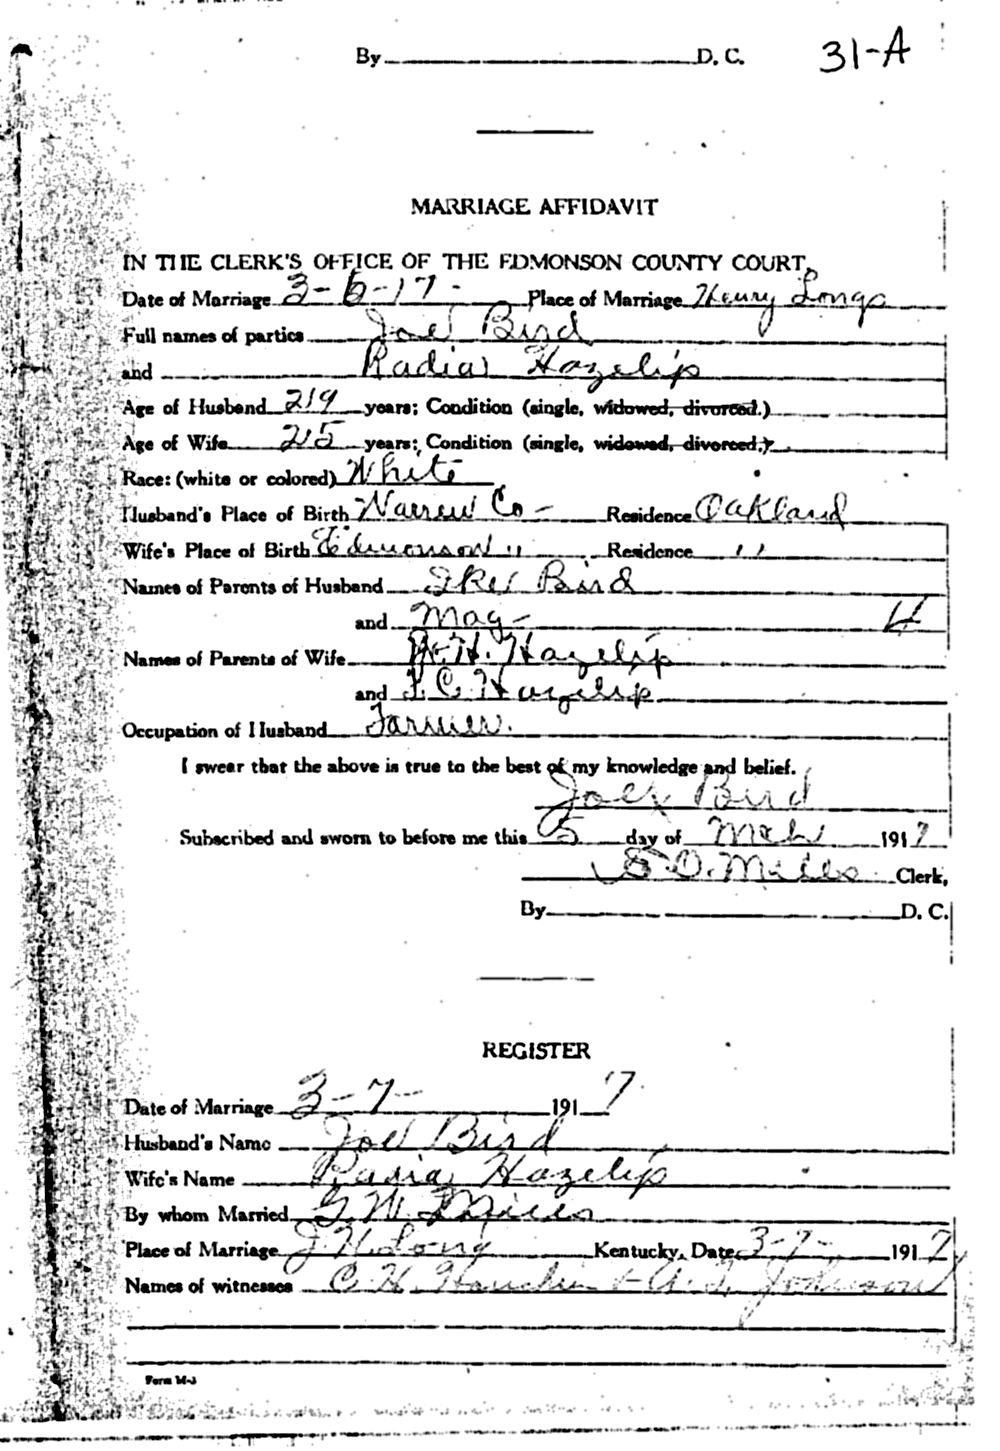 By D. C. 31-A
MARRIAGE AFFIDAVIT
IN THE CLERK'S OFFICE OF THE EDMONSON COUNTY COURT,
Date of Marriage 3-6-17- Place of Marriage Henry Longs
Full names of parties Joe Bird
and Radia Hazelip
Age of Husband 29 years; Condition (single, widowed, divorced.)
Age of Wife 25 years; Condition (single, widowed, divorced.)
Race: (white or colored) White
Husband's Place of Birth Warren Co- Residence Oakland
Wife's Place of Birth Edmonson " Residence "
Names of Parents of Husband Ike Bird
and Mag-
Names of Parents of Wife H. Hazelip
and C Hazelip
Occupation of Husband Farmer.
I swear that the above is true to the best of my knowledge and belief.
Joe x Bird
Subscribed and sworn to before me this 5 day of Mch 1917
S. O. Mills Clerk,
By D. C.
REGISTER
Date of Marriage 3-7- 1917
Husband's Name Joe Bird
Wife's Name Radia Hazelip
By whom Married G. W. Mills
Place of Marriage J H. Long Kentucky, Date 3-7- 1917
Names of witnesses C. H. Johnson
Form M-3